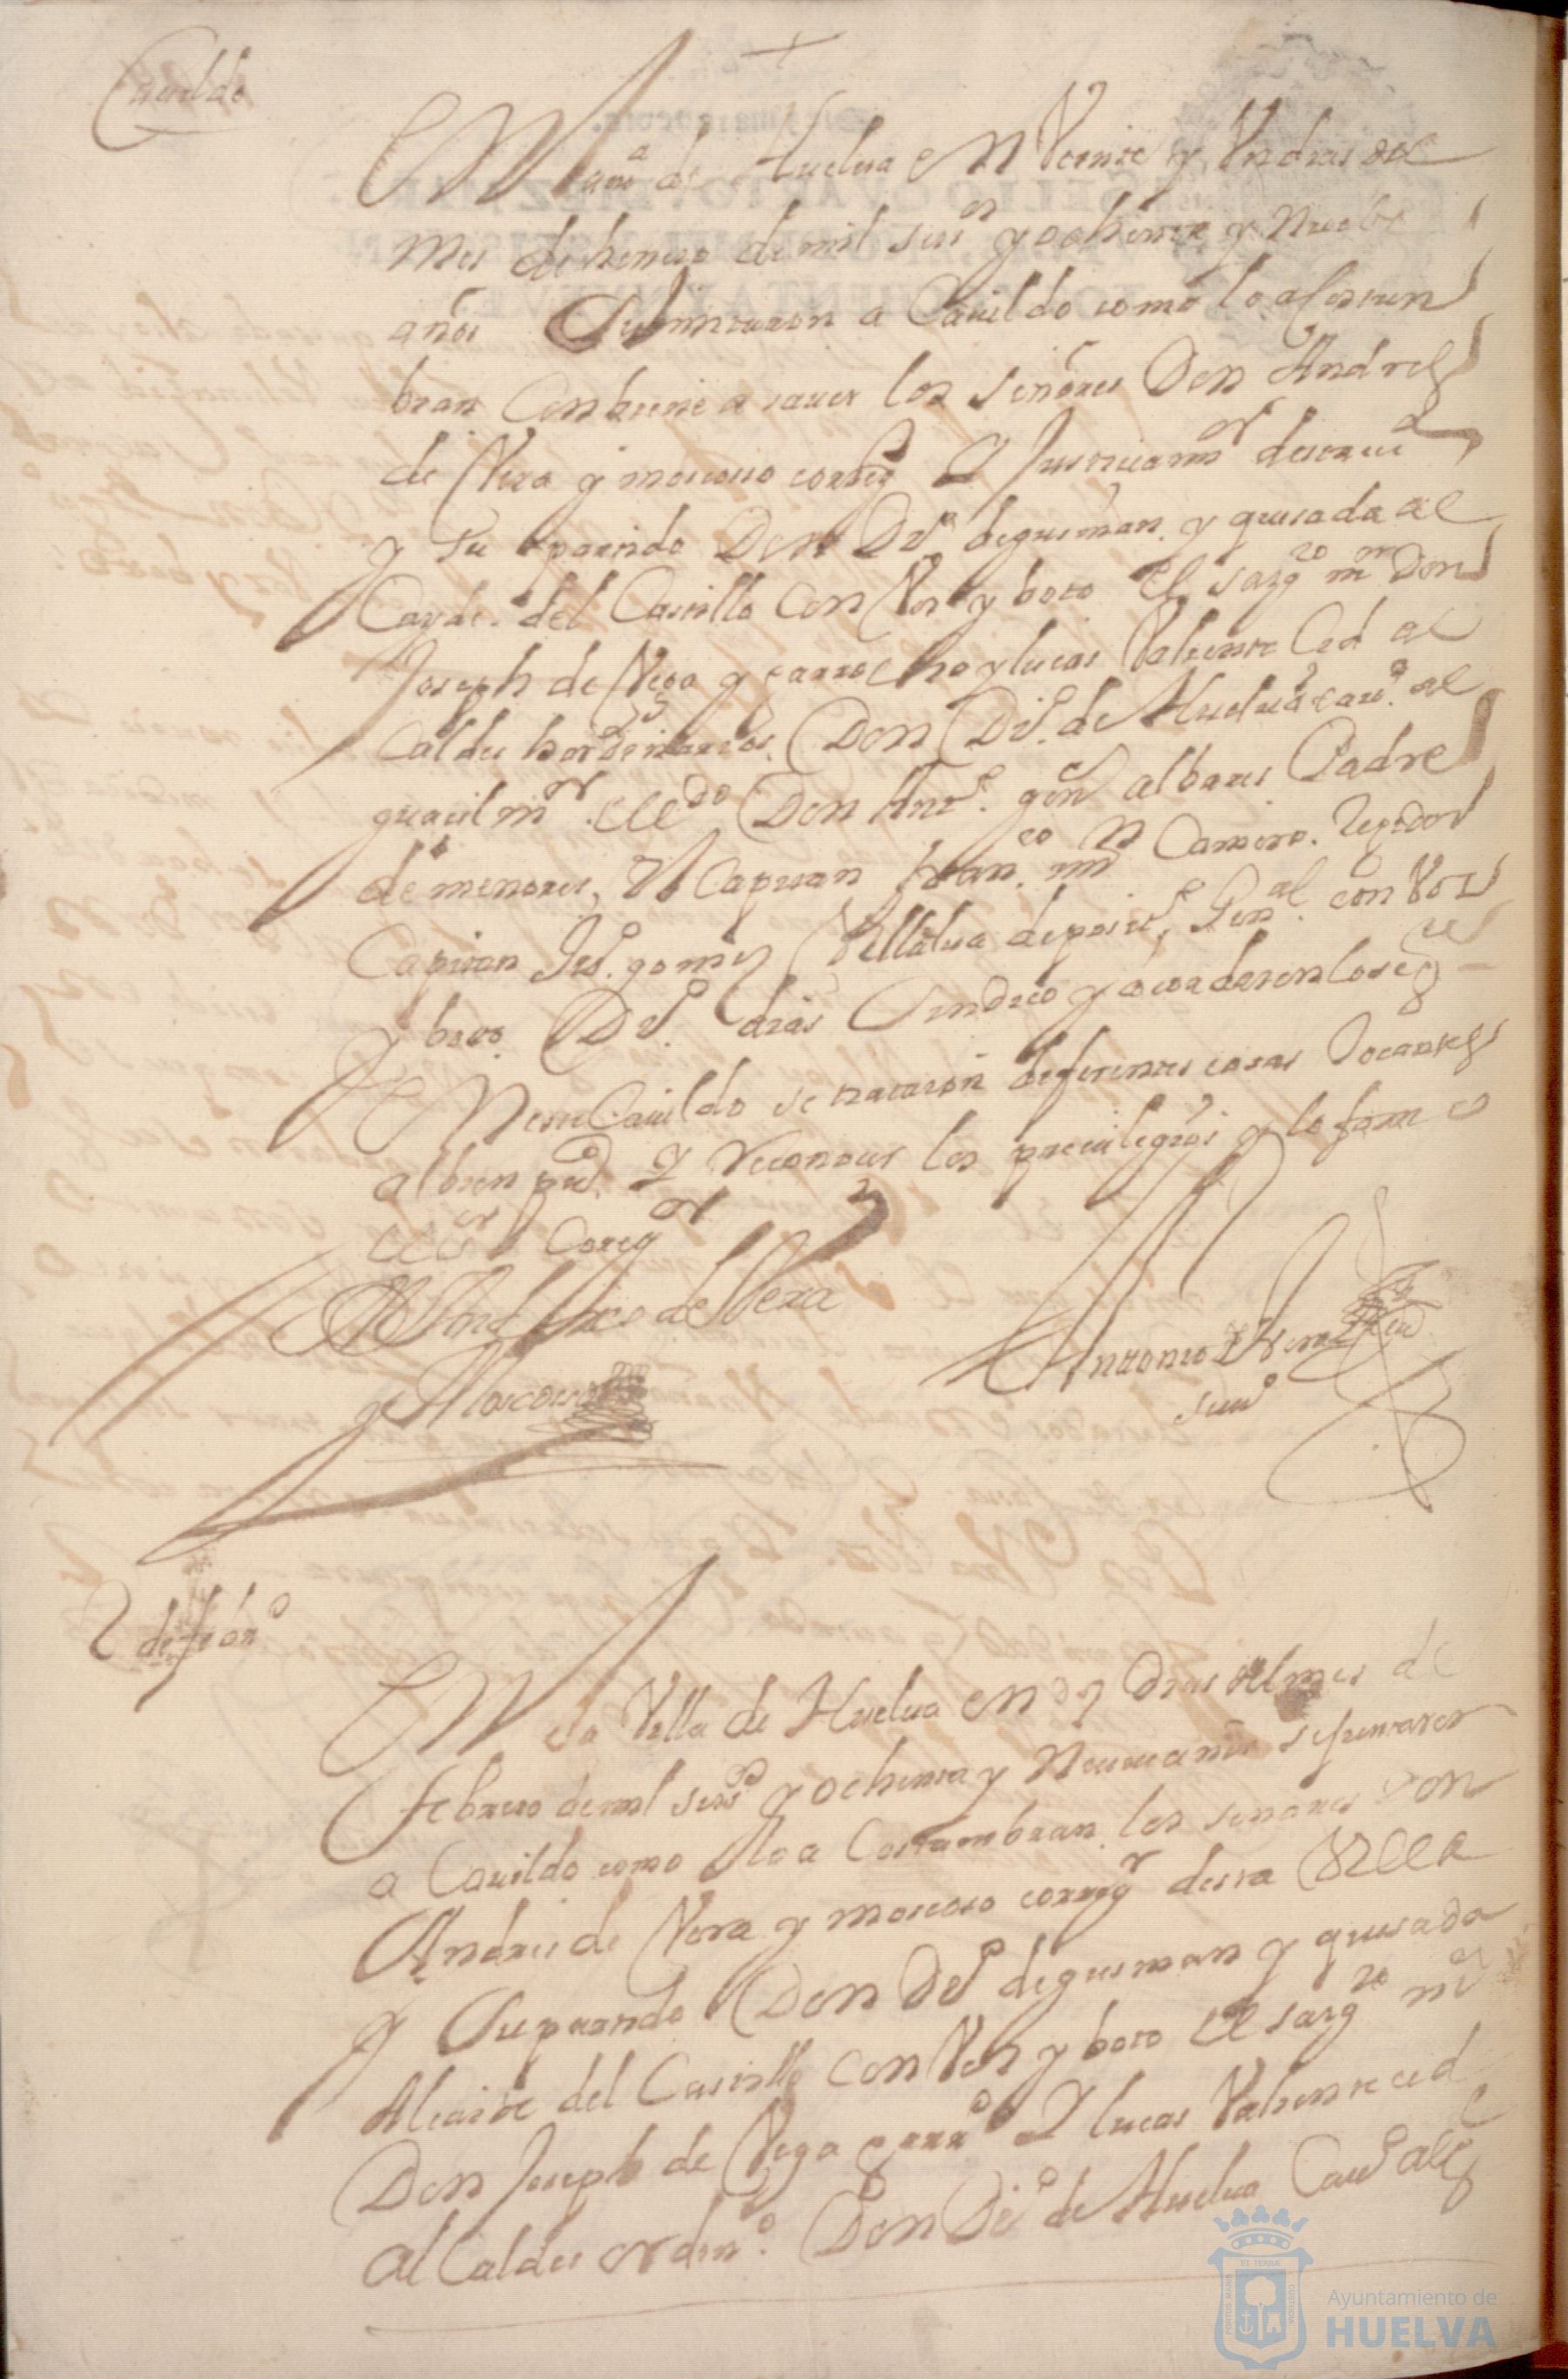 Cauildo
En la uª de Huelua en Veinte y Un dias del
mes de henero de mil seisºˢ y ochenta y Nuebe
años Se Juntaron a Cauildo como lo acostun
bran Conbiene a sauer los señores Don Andres
de Vera y moscoso corregʳ y Justicia mʳ desta uª
y su partido Don Dº de gusman y quesada al
Cayde del Castillo Con Vos y boto El sargᵗᵒ mʳ Don
Joseph de Vega y garrocho y lucas Valiente Cid al
Caldes hordinarios Don Dº de Huelua cauº al
guacil mʳ ldo Don Antº gonˢ albares Padre
de menores, El Capitan franᶜᵒ mⁿ Camero Regidor
Capitan Juº gomes Villalua depositº Genᵃˡ con Vos
y boto Dº dias Sindico y acordaron lo sigᵗᵉ
En este Cauildo se trataron diferentes cosas tocantes
al bien puᶜᵒ y Reconocer los preuilegios y lo firmo
el sʳ Coregʳ
Don Andres de Vera
y Moscoso
Antonio de Vera Cid
scriuº
2 de feº
En la Villa de Huelua en dos dias del mes de
febrero de mil seisºˢ y ochenta y Nueue años se juntaron
a Cauildo como lo a Costumbran los senores Don
Andres de Vera y moscoso corregʳ desta Villa
y Su partido Don Dº de gusman y quesada
Alcaide del Castillo con Vos y boto El sargᵗᵒ mʳ
Don Joseph de Vega garrº y lucas Valiente cid
al Caldes ordinº. Don Diº de Huelua Cauº alg
Ayuntamiento de
HUELVA